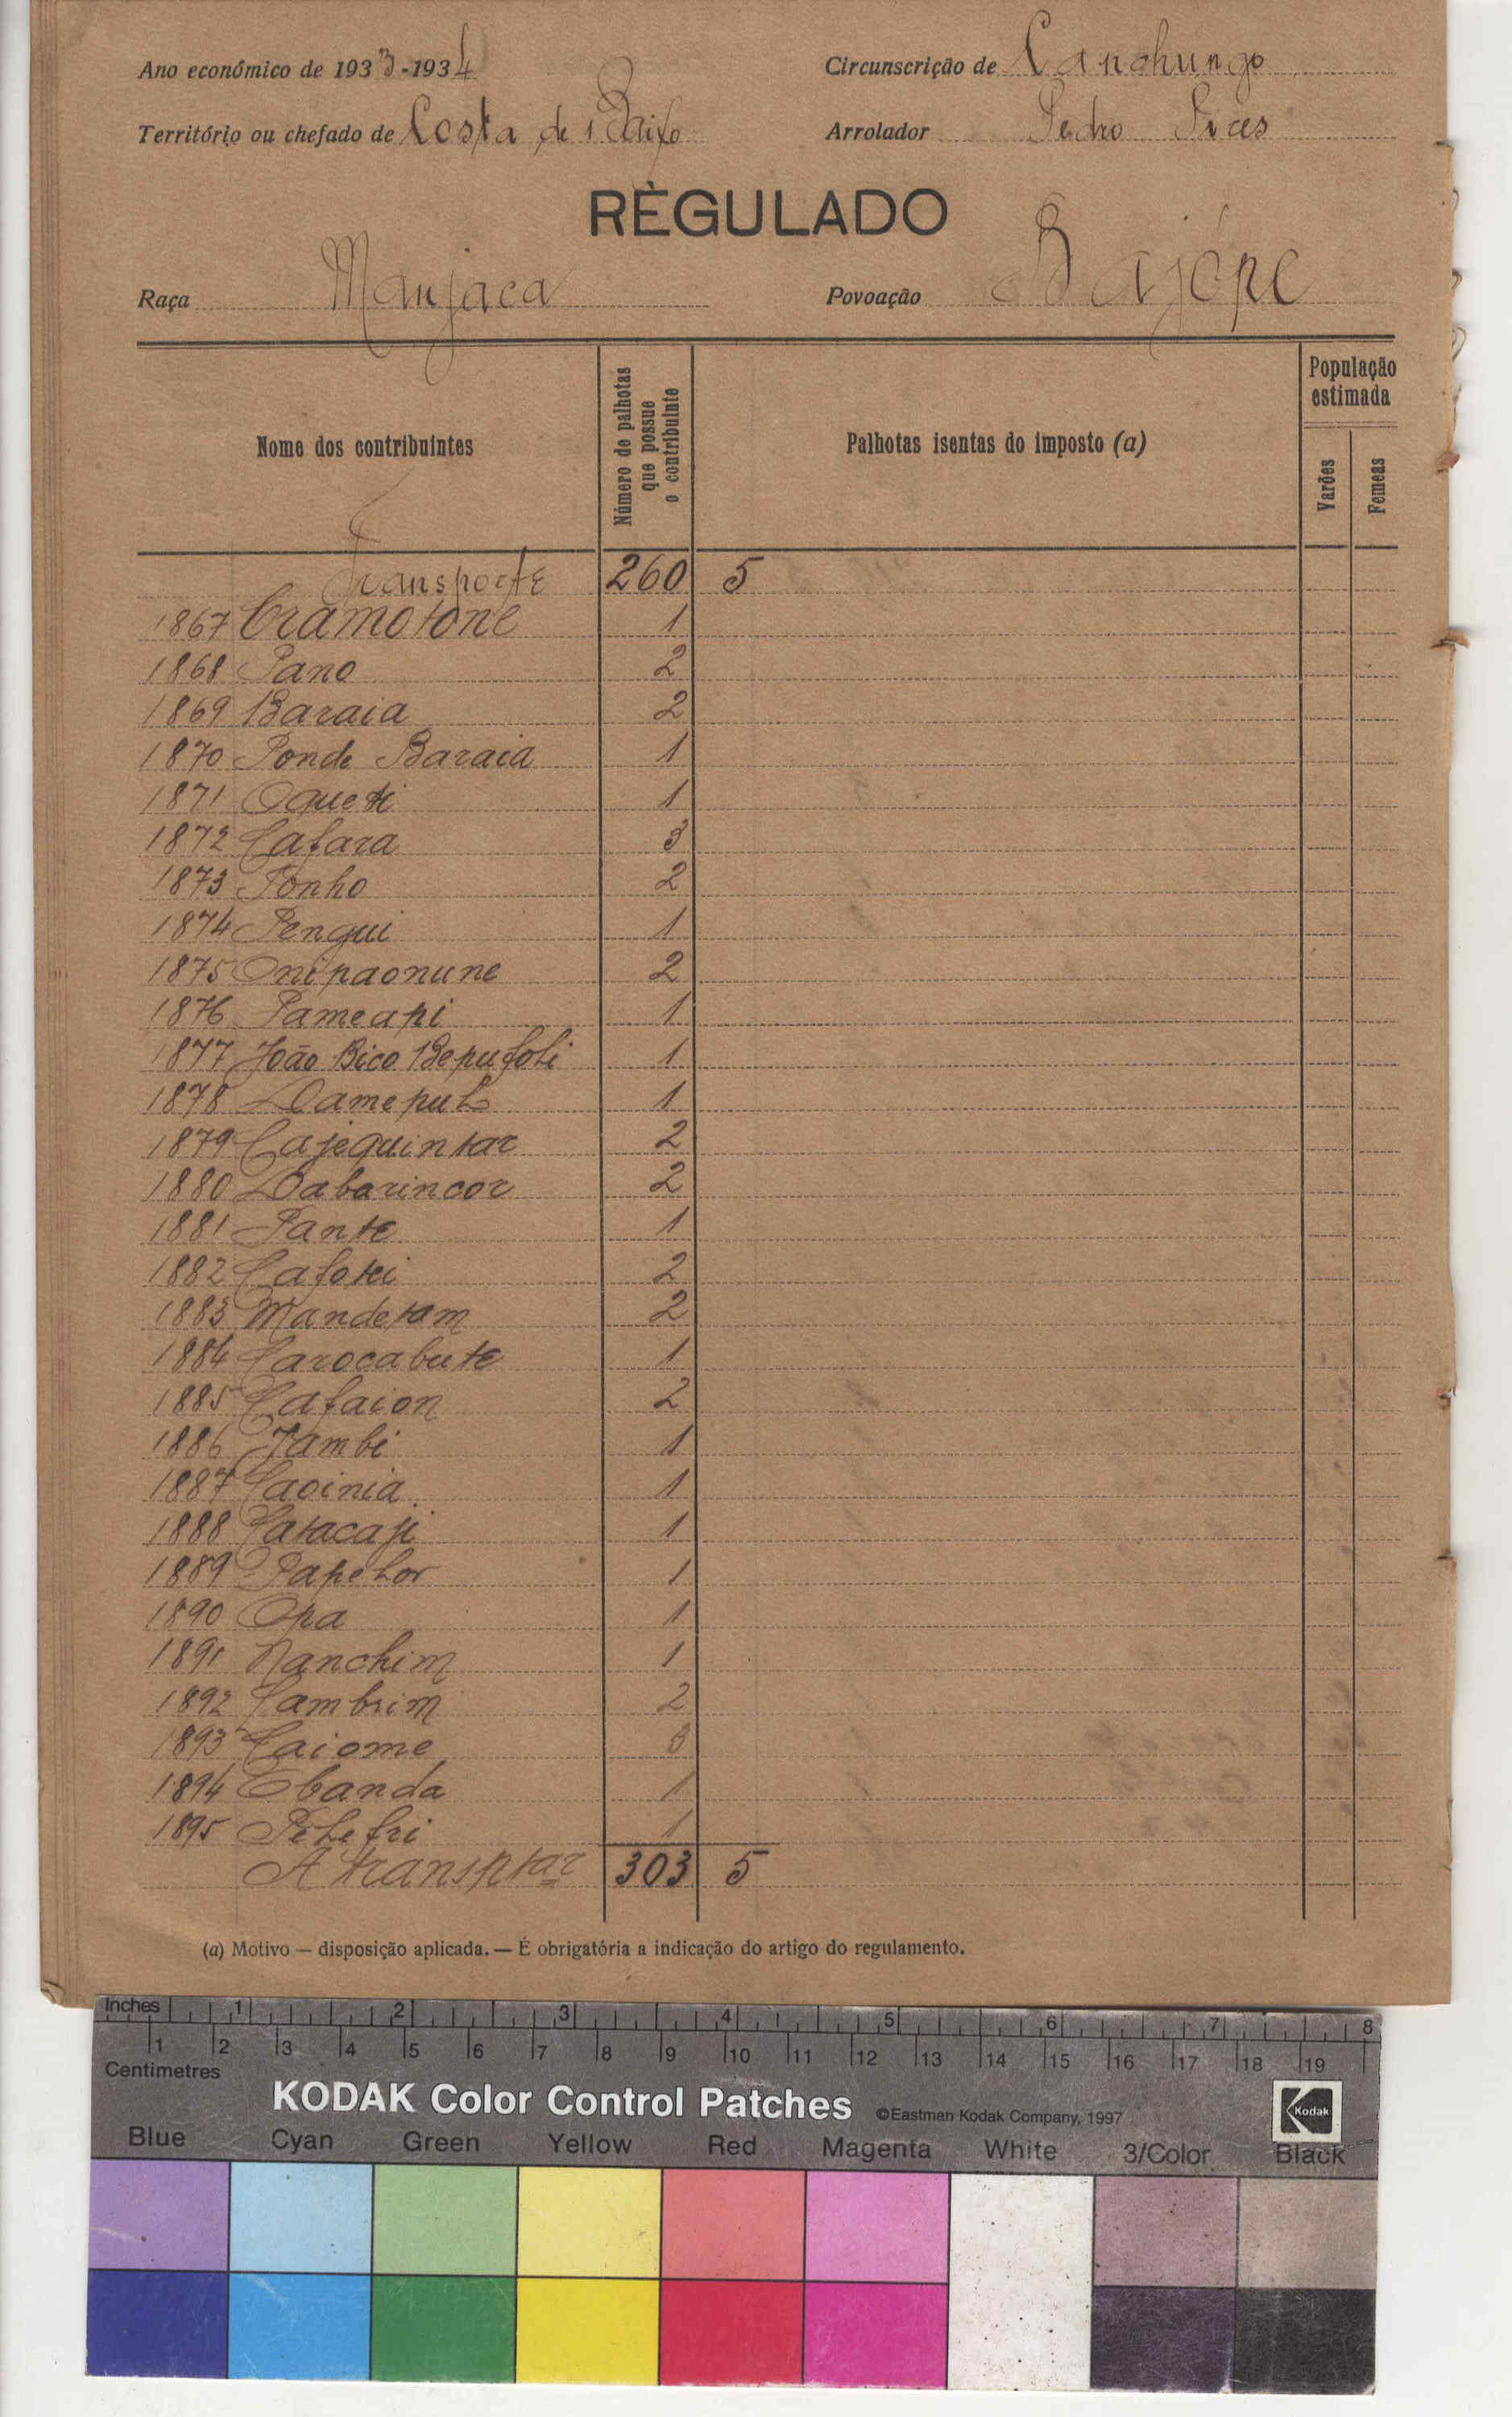 Ano económico de 1933-1934
Circunscrição de Canchungo
Território ou chefado de Costa de Baixo
Arrolador Pedro Pires
RÈGULADO
Raça Manjaca
Povoação Bajópe
Nome dos contribuintes
Número de palhotas que possue o contribuinte
Palhotas isentas do imposto (a)
População estimada
Varões
Femeas
Transporte 260 5
1867 Cramotone 1
1868 Pano 2
1869 Baraia 2
1870 Ponde Baraia 1
1871 Oqueti 1
1872 Cafara 3
1873 Ponho 2
1874 Pengui 1
1875 Onipaonune 2
1876 Pameapi 1
1877 João Bico Bepufoli 1
1878 Damepul 1
1879 Cajequintar 2
1880 Dabarincor 2
1881 Pante 1
1882 Cafotei 2
1883 Mandetam 2
1884 Carocabute 1
1885 Cafaion 2
1886 Jambi 1
1887 Caoinia 1
1888 Catacaji 1
1889 Papelor 1
1890 Opa 1
1891 Nanchim 1
1892 Cambrim 2
1893 Caiome 3
1894 Obanda 1
1895 Pelefri 1
A transptar 303 5
(a) Motivo — disposição aplicada. — É obrigatória a indicação do artigo do regulamento.
Inches 1 2 3 4 5 6 7 8
1 2 3 4 5 6 7 8 9 10 11 12 13 14 15 16 17 18 19
Centimetres
KODAK Color Control Patches ©Eastman Kodak Company, 1997 Kodak
Blue Cyan Green Yellow Red Magenta White 3/Color Black